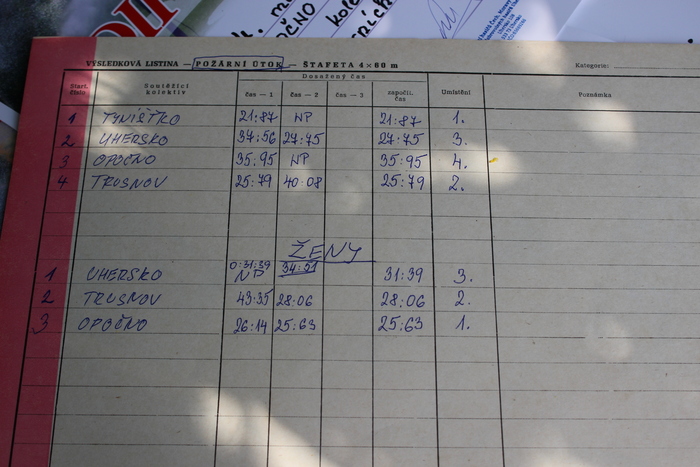 OČNO
VÝSLEDKOVÁ LISTINA — POŽÁRNÍ ÚTOK — ŠTAFETA 4×60 m
Kategorie:
Start. číslo Soutěžící kolektiv Dosažený čas Umístění Poznámka
čas — 1 čas — 2 čas — 3 započít. čas
1 TÝNIŠŤKO 21:87 NP 21:87 1.
2 UHERSKO 37:56 27:75 27:75 3.
3 OPOČNO 35:95 NP 35:95 4.
4 TRUSNOV 25:79 40:08 25:79 2.
ŽENY
1 UHERSKO 0:31:39 NP 34:51 31:39 3.
2 TRUSNOV 43:35 28:06 28:06 2.
3 OPOČNO 26:14 25:63 25:63 1.